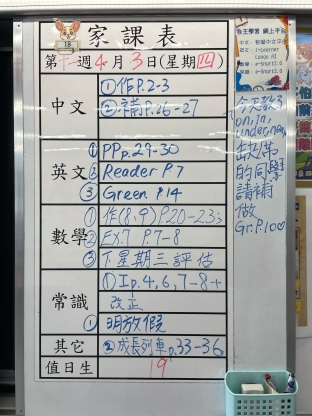 18
家課表
第十一週4月3日(星期四)
中文
①作P.2-3
②補P.26-27
英文
①PPp.29-30
②Reader P.7
③Green P.14
數學
①作(8,9)P.20-23;
②EX.7 P.7-8
③下星期三評估
常識
①Ip.4,6,7-8+
改正
其它
①明放假
②成長列車p.33-36
值日生
19
自主學習 網上平台
今天教了
on, in,
under, near
缺席
的同學
請補
做
Gr.P.10